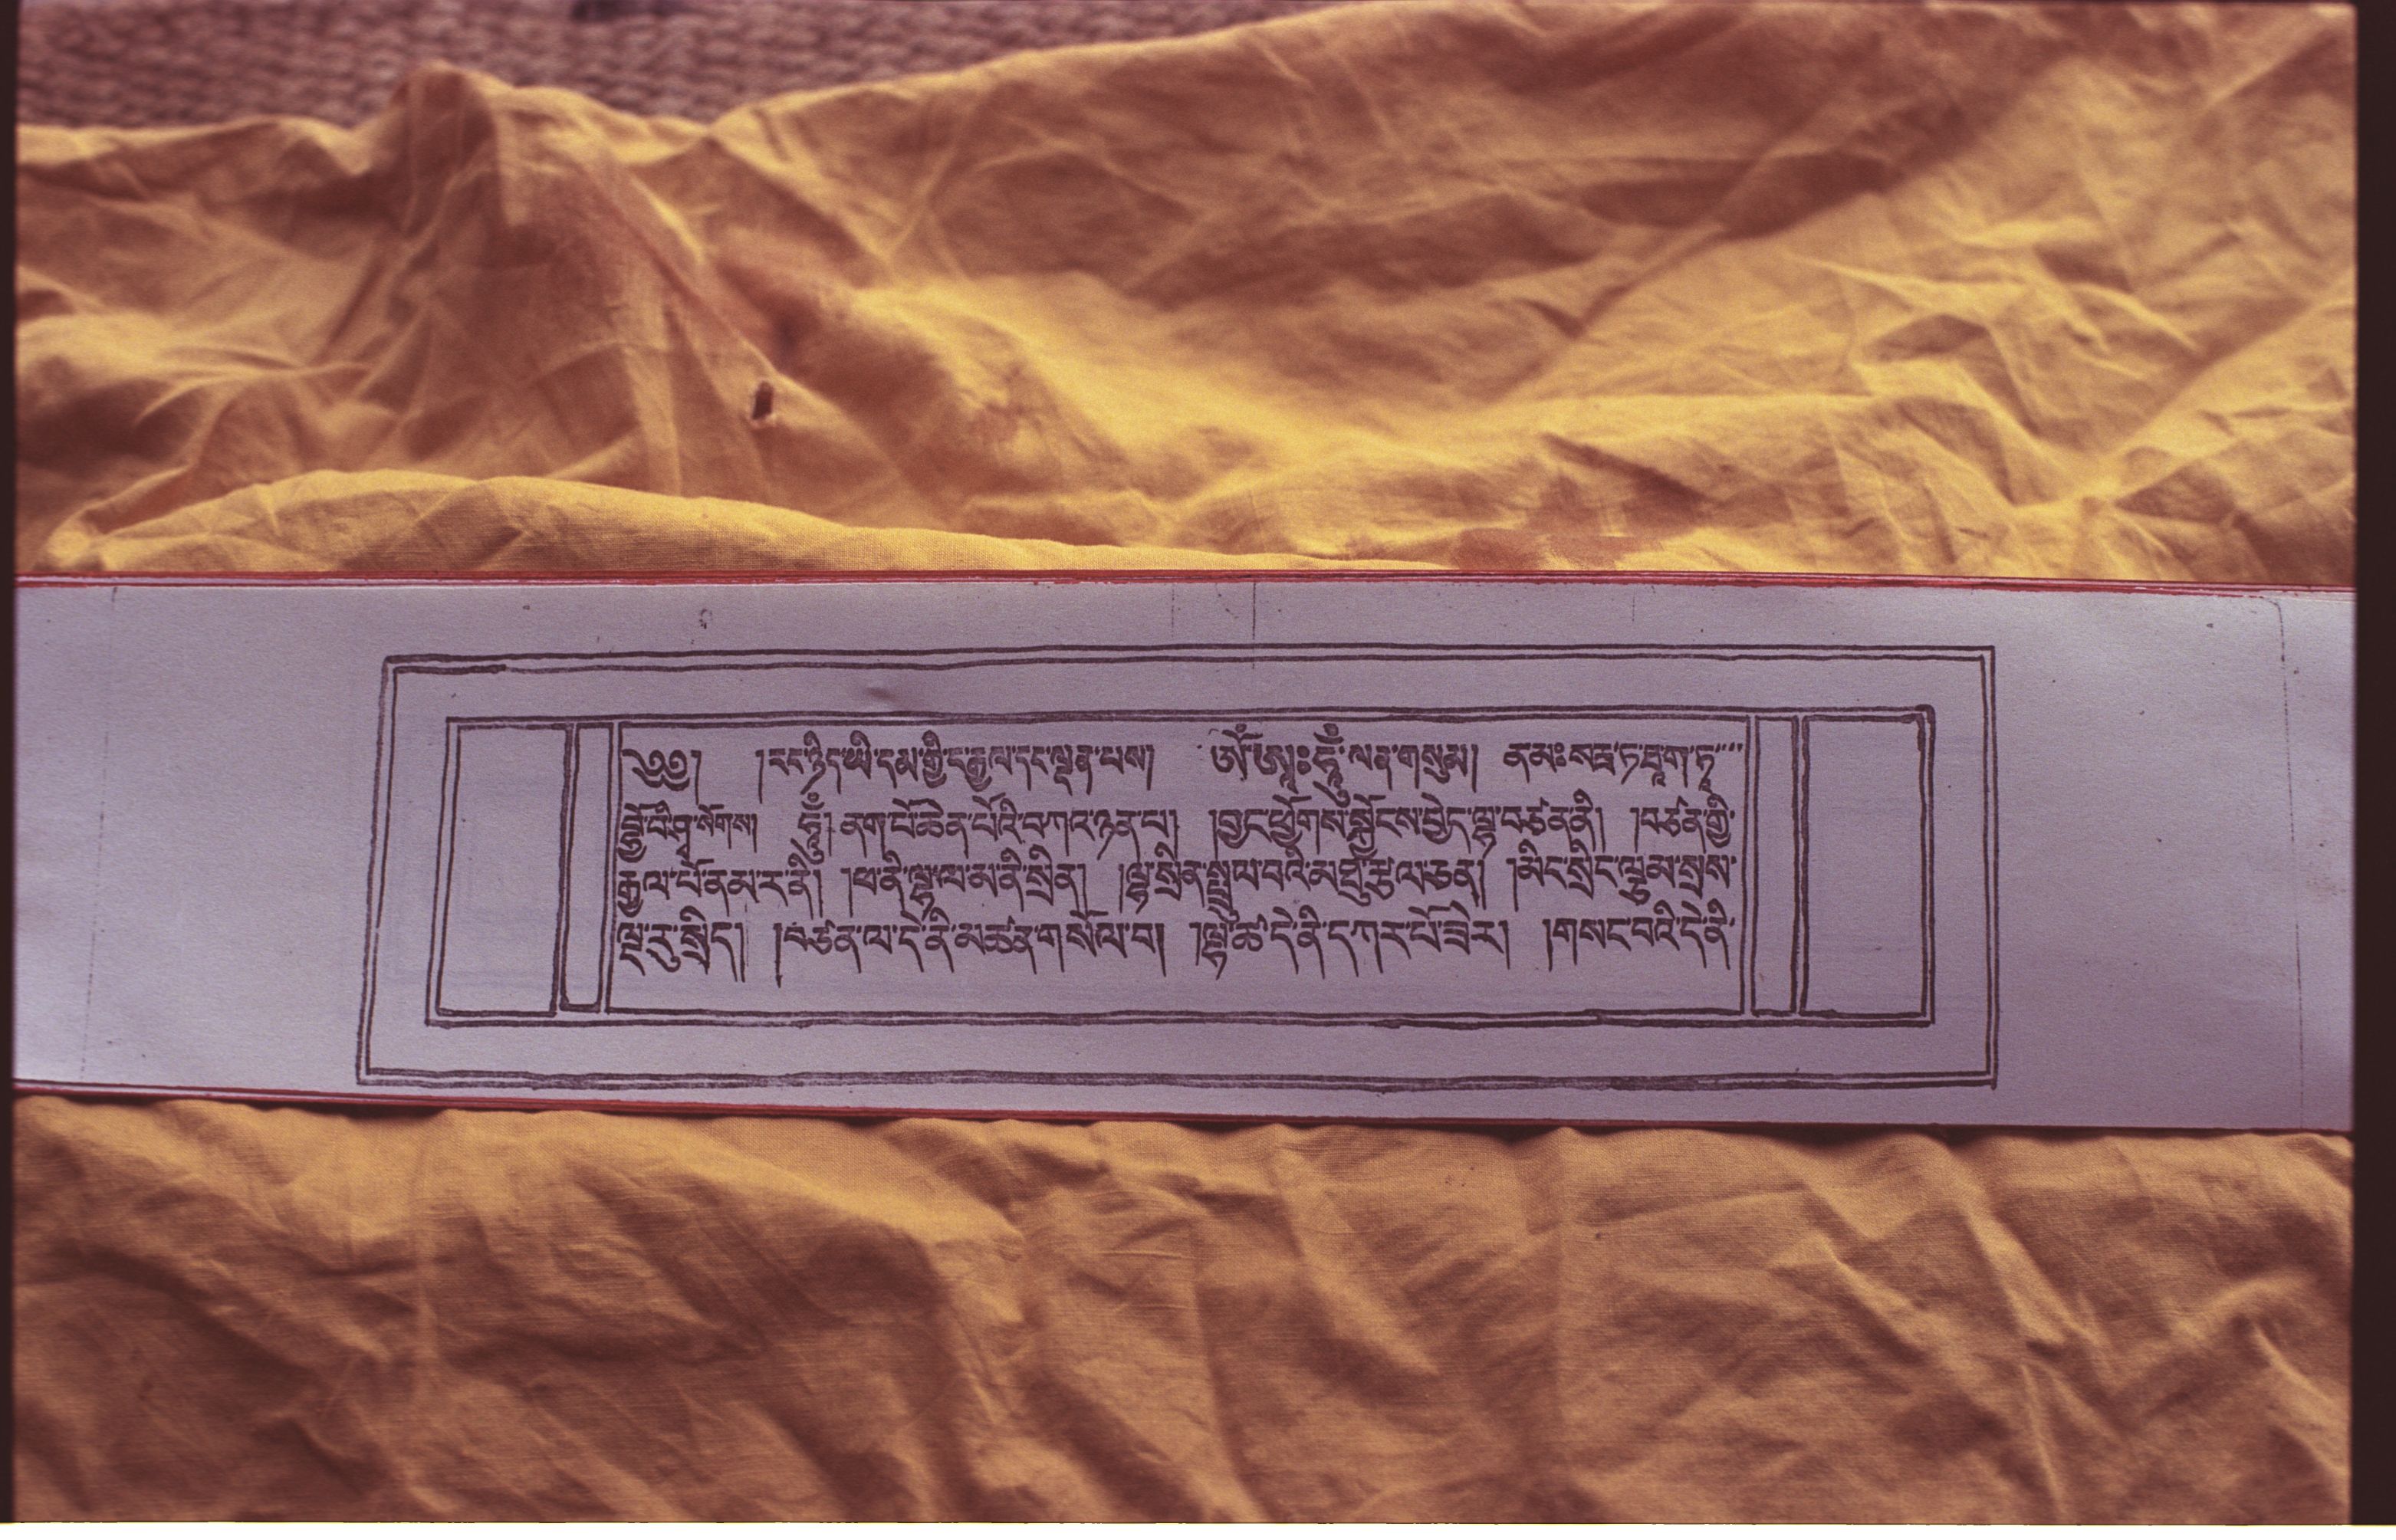 ༄༅། །རང་ཉིད་ཡི་དམ་གྱི་ང་རྒྱལ་དང་ལྡན་པས། ཨོཾ་ཨཱཿཧཱུྃ་ལན་གསུམ། ན་མཿསརྦ་ཏ་ཐཱ་ག་ཏཱ
ཧཱུྃ། ནག་པོ་ཆེན་པོའི་བཀའ་ཉན་པ། །བྱང་ཕྱོགས་སྐྱོངས་བྱེད་ལྷ་བཙན་ནི། །བཙན་གྱི་
རྒྱལ་པོ་ནམ་ར་ནི། །ཕ་ནི་ལྷ་ལ་མ་ནི་སྲིན། །ལྷ་སྲིན་སྤྲུལ་བའི་མཐུ་རྩལ་ཅན། །མིང་སྲིང་ལྕམ་སྲས་
ལྔ་རུ་སྲིད། །བཙན་ལ་དེ་ནི་མཚན་གསོལ་བ། །ལྷ་ཚེ་དེ་ནི་དཀར་པོ་ཟེར། །གསང་བའི་དེ་ནི་